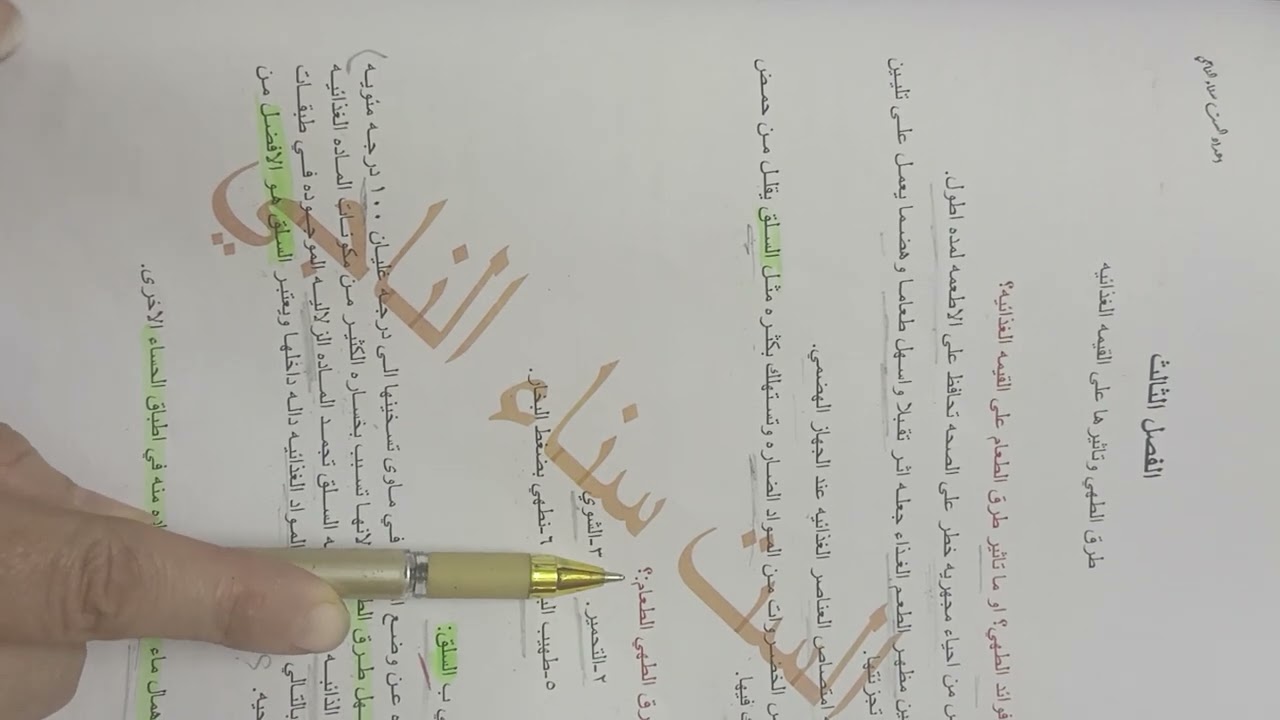 اعداد الست سناء الناجي
الفصل الثالث
طرق الطهي وتاثيرها على القيمه الغذائيه
فوائد الطهي؟ او ما تاثير طرق الطعام على القيمه الغذائيه؟
من احياء مجهريه خطر على الصحه تحافظ على الاطعمه لمده اطول.
مظهر الطعم الغذاء جعله اثر تقبلا واسهل طعاما و هضما يعمل على تليين
تجزئتها.
امتصاص العناصر الغذائيه عند الجهاز الهضمي.
الخضروات من المواد الضاره وتستهلك بكثره مثل السلق يقلل من حمض
فيها.
الطهي الطعام:؟
٢-التحمير. ٣-الشوي
٥-طهيب ٦-نطهي بضغط البخار.
ب السلق:
عن وضع في ماوى تسخينها الى درجه غليان ١٠٠ درجه مئويه
طرق لانها تسبب بخساره الكثير من مكونات الماده الغذائيه
السلق تجمد الماده الزلاليه الموجوده في طبقات
بالتالي المواد الغذائيه داله داخلها ويعتبر السلق هو الافضل من
حيه.
ماء منه في اطباق الحساء الاخرى.
الست سناء الناجي